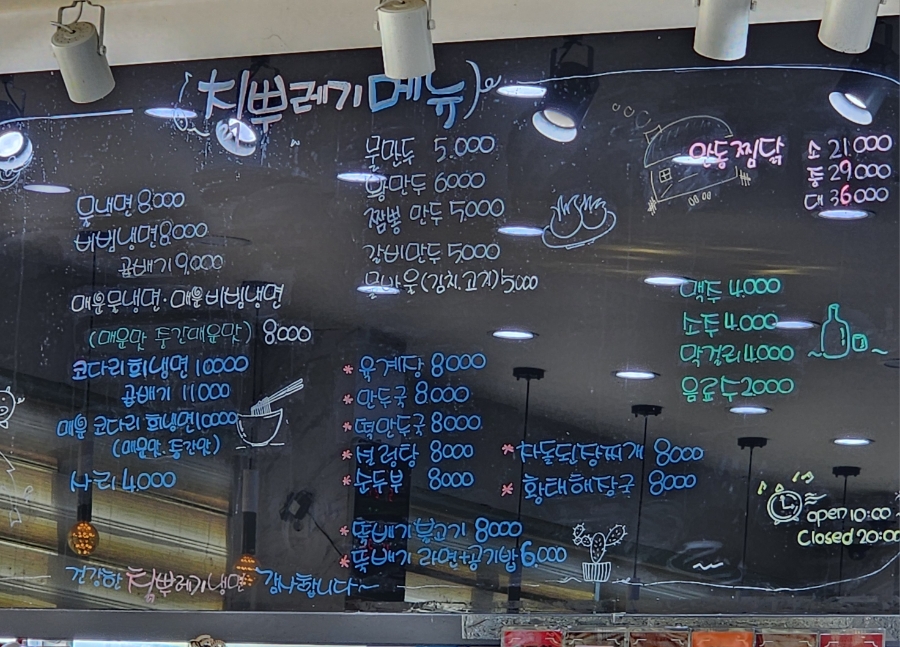 칡뿌레기 메뉴
물냉면 8.000
비빔냉면 8.000
곱배기 9.000
매운물냉면·매운비빔냉면
(매운맛 중간매운맛) 8000
코다리회냉면 10000
곱배기 11000
매운 코다리 회냉면 10000
(매운맛. 중간맛)
사리 4.000
물만두 5.000
왕만두 6000
짬뽕 만두 5.000
갈비만두 5000
(김치.고기) 5.000
*육계탕 8000
*만두국 8.000
*떡만두국 8000
*설렁탕 8000
*순두부 8000
*뚝배기불고기 8000
*뚝배기 라면+공기밥 6.000
*차돌된장찌개 8000
*황태해장국 8000
안동찜닭 소 21.000
중 29000
대 36000
맥주 4.000
소주 4.000
막걸리 4.000
음료수 2000
open 10:00 ~
Closed 20:00
건강한 칡뿌레기냉면 감사합니다~